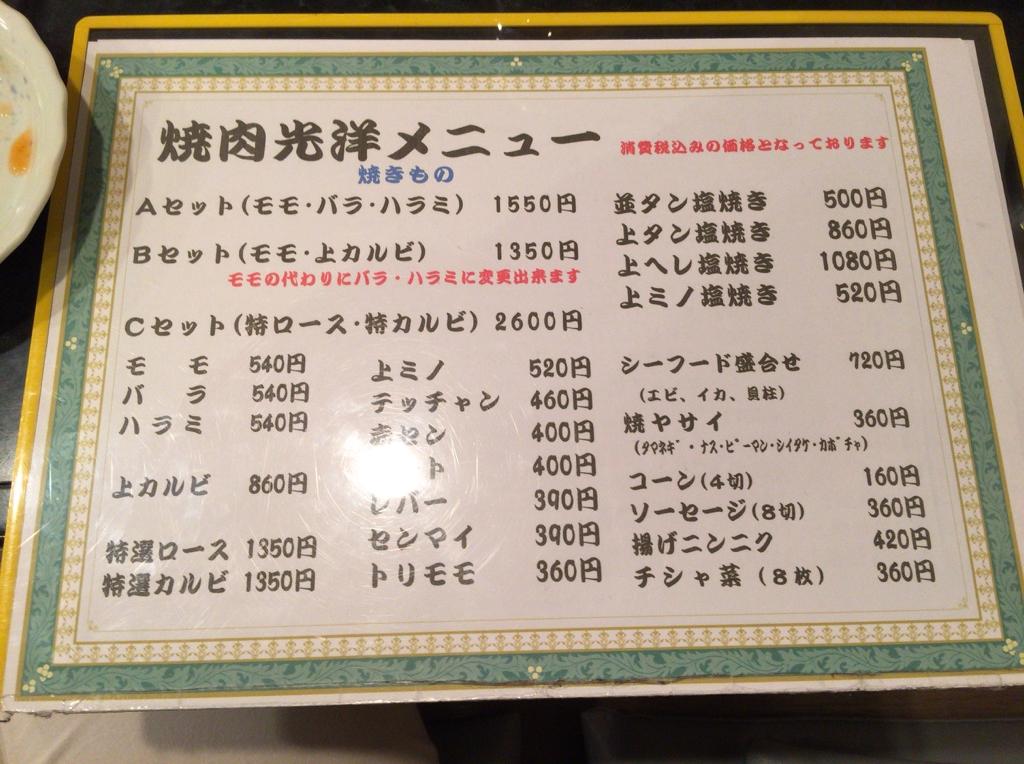 焼肉光洋メニュー
消費税込みの価格となっております
焼きもの
Aセット(モモ・バラ・ハラミ) 1550円
Bセット(モモ・上カルビ) 1350円
モモの代わりにバラ・ハラミに変更出来ます
Cセット(特ロース・特カルビ) 2600円
モモ 540円
バラ 540円
ハラミ 540円
上カルビ 860円
特選ロース 1350円
特選カルビ 1350円
上ミノ 520円
テッチャン 460円
赤セン 400円
ト 400円
レバー 390円
センマイ 390円
トリモモ 360円
並タン塩焼き 500円
上タン塩焼き 860円
上ヘレ塩焼き 1080円
上ミノ塩焼き 520円
シーフード盛合せ 720円
(エビ、イカ、貝柱)
焼ヤサイ 360円
(タマネギ・ナス・ピーマン・シイタケ・カボチャ)
コーン(4切) 160円
ソーセージ(8切) 360円
揚げニンニク 420円
チシャ菜(8枚) 360円